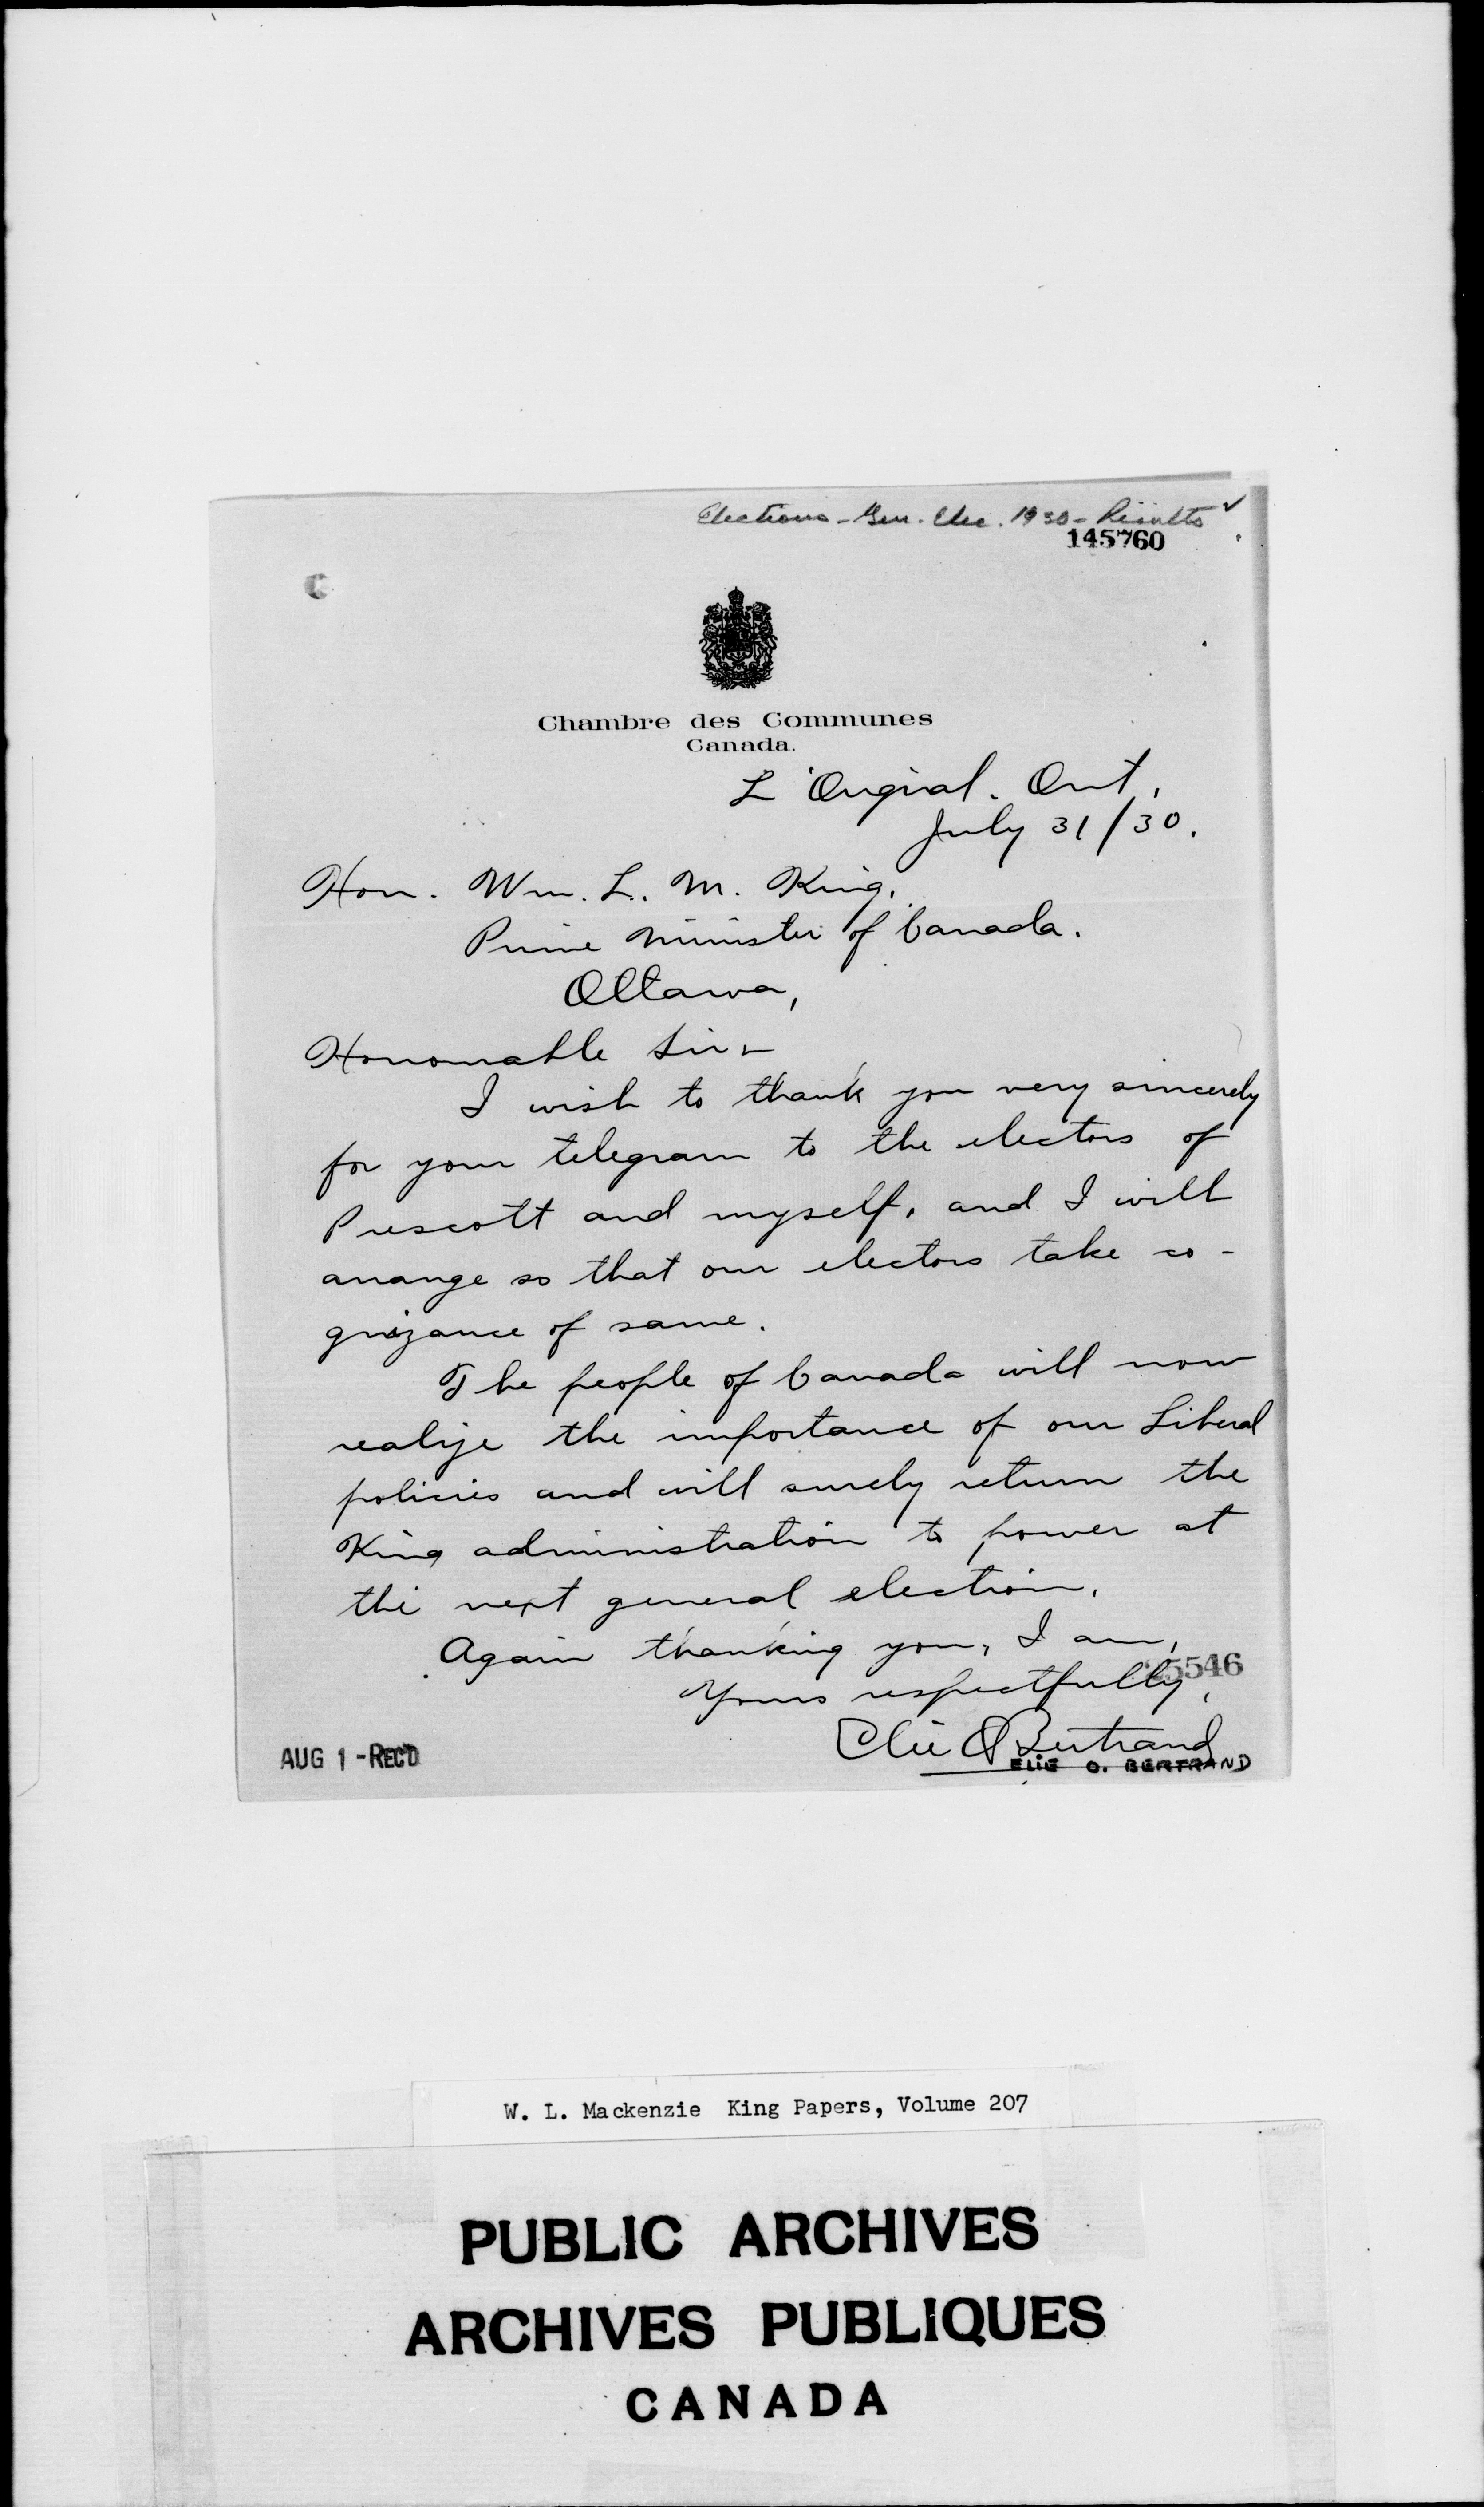 Elections - Gen. Elec. 1930 - Results ✓
145760
Chambre des Communes
Canada.
L'Orignal. Ont.
July 31/30.
Hon. Wm. L. M. King,
Prime Minister of Canada.
Ottawa,
Honourable Sir:-
I wish to thank you very sincerely
for your telegram to the electors of
Prescott and myself, and I will
arrange so that our electors take co-
gnizance of same.
The people of Canada will now
realize the importance of our Liberal
policies and will surely return the
King administration to power at
the next general election.
Again thanking you, I am,
5546
Yours respectfully,
Elie O Bertrand
ELIE O. BERTRAND
AUG 1 - REC'D
W. L. Mackenzie King Papers, Volume 207
PUBLIC ARCHIVES
ARCHIVES PUBLIQUES
CANADA